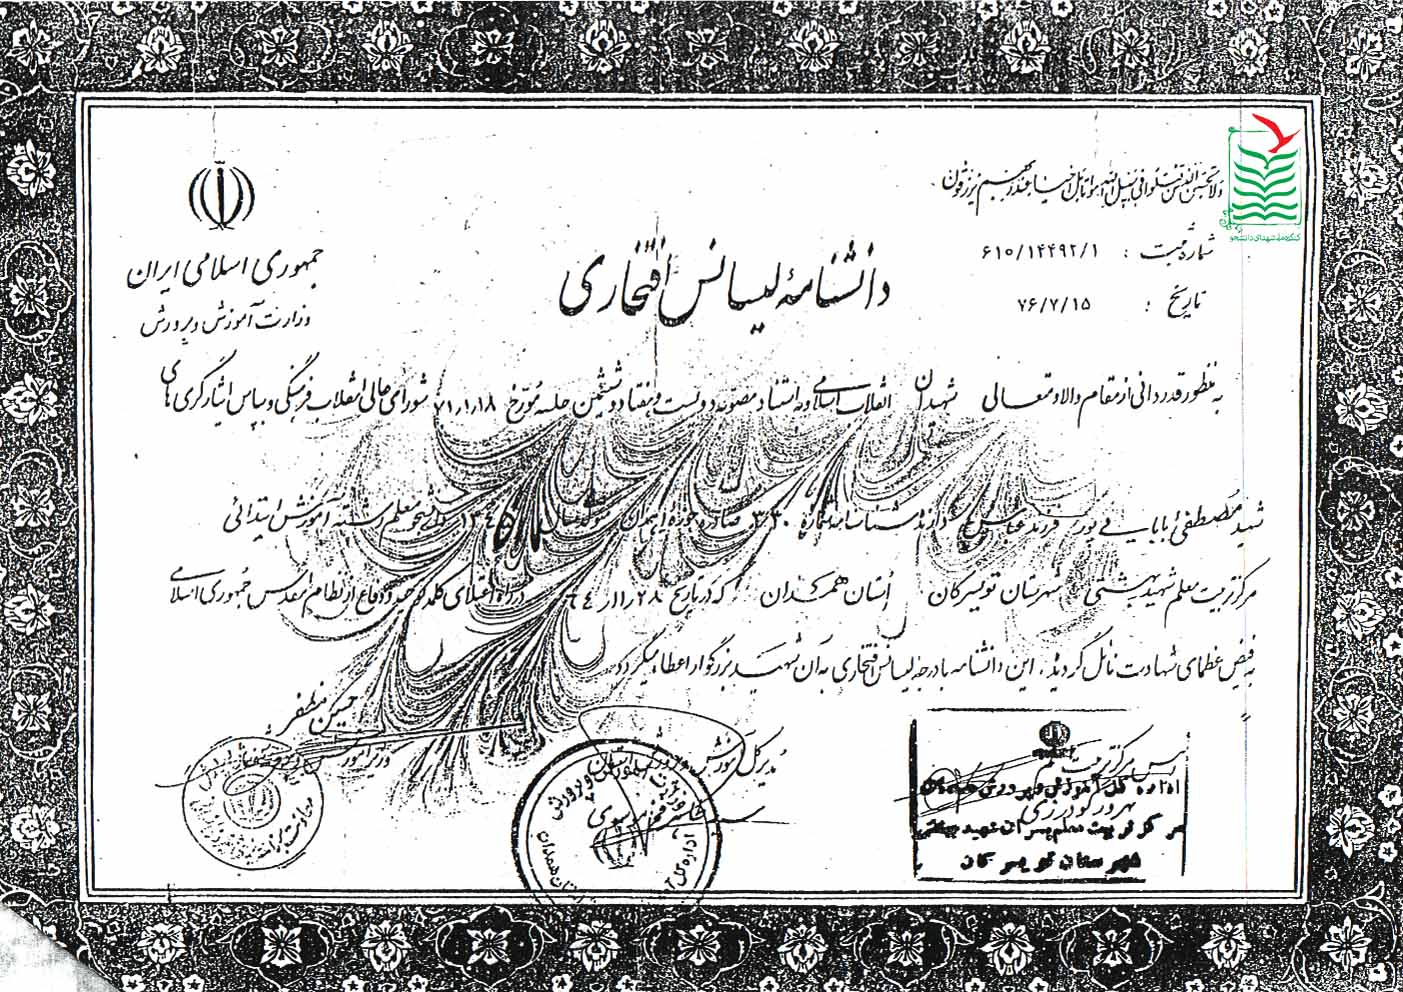 ولا تحسبن الذین قتلوا فی سبیل الله امواتا بل احیاء عند ربهم یرزقون
کنگره ملی شهدای دانشجو
جمهوری اسلامی ایران
وزارت آموزش و پرورش
شماره ثبت : ۶۱۰/۱۴۴۹۲/۱
تاریخ : ۷۶/۷/۱۵
دانشنامه لیسانس افتخاری
به منظور قدردانی از مقام والا و متعالی شهیدان انقلاب اسلامی و به استناد مصوبه دویست و هفتاد و ششمین جلسه مورخ ۷۱٫۱٫۱۸ شورای عالی انقلاب فرهنگی و بپاس ایثارگری های
شهید مصطفی بابایی پور فرزند عباس دارنده شناسنامه شماره صادره از حوزه متولد سال دانشجو معلم رشته آموزش ابتدائی
مرکز تربیت معلم شهید بهشتی شهرستان تویسرکان استان همدان که در تاریخ در راه اعتلای کلمه توحید و دفاع از نظام مقدس جمهوری اسلامی
به فیض عظمای شهادت نائل گردید، این دانشنامه با درجه لیسانس افتخاری به آن شهید بزرگوار اعطاء میگردد
حسین مظفر
وزیر آموزش و پرورش
مدیر کل آموزش و پرورش استان
فخر موسوی
رئیس مرکز تربیت معلم
بهروز گودرزی
اداره کل آموزش و پرورش
مرکز تربیت معلم پسران شهید بهشتی
شهرستان تویسرکان